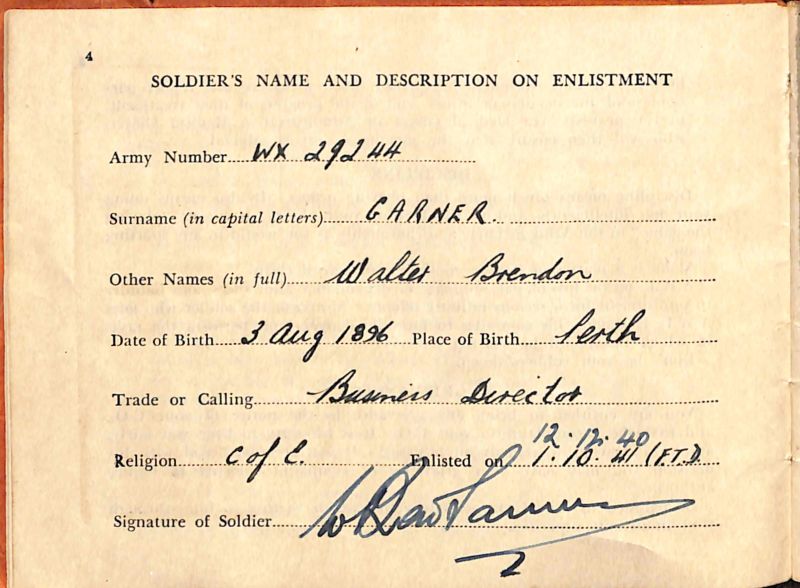 4
SOLDIER'S NAME AND DESCRIPTION ON ENLISTMENT
Army Number WX 29244
Surname (in capital letters) GARNER.
Other Names (in full) Walter Brendon
Date of Birth 3 Aug 1896 Place of Birth Perth
Trade or Calling Business Director
12.12.40
Religion C of C. Enlisted on 1.10.41 (F.T.D.
Signature of Soldier